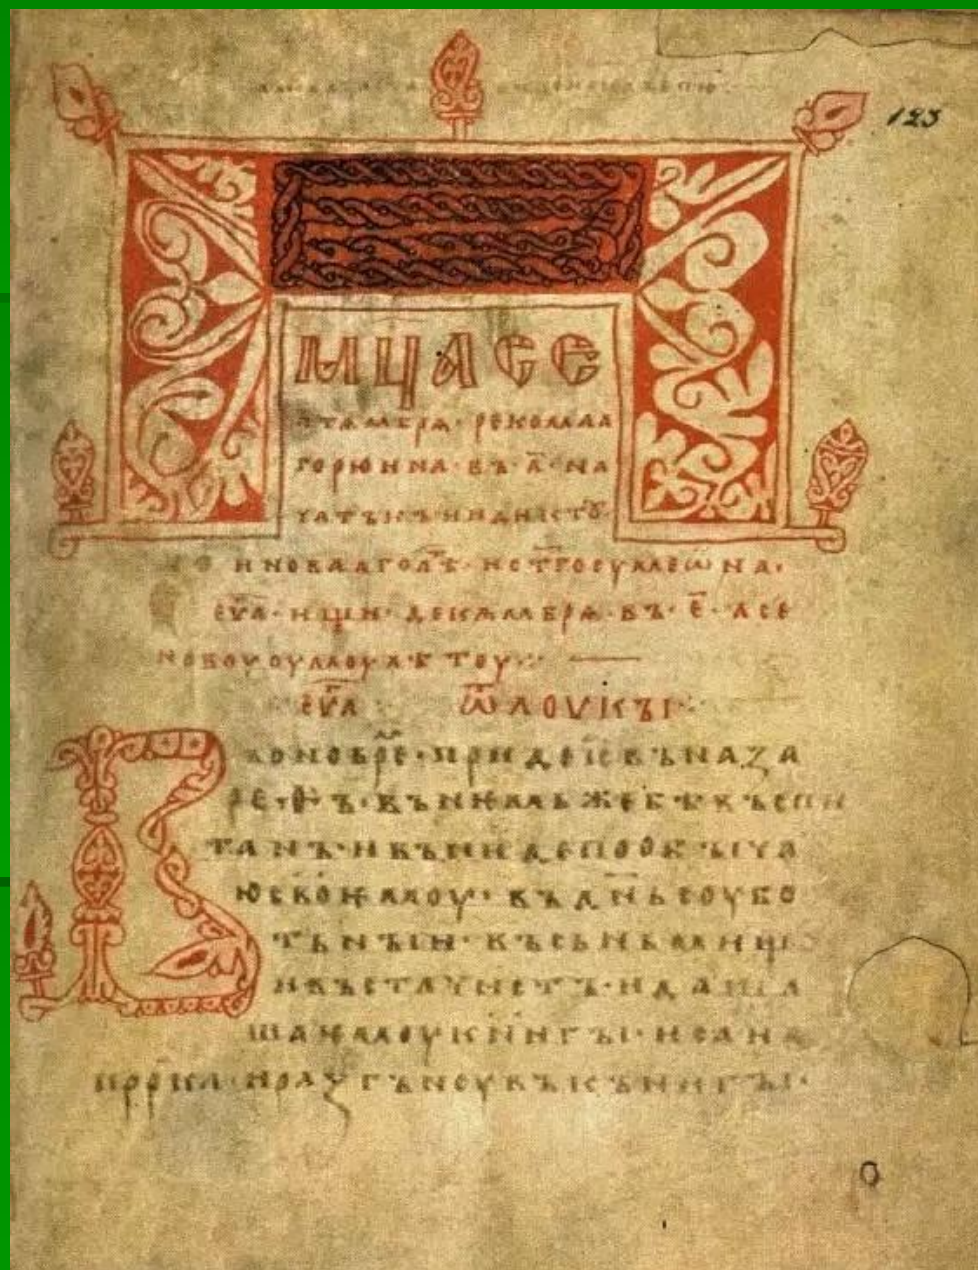 123
МЦАСЕ
ПТѦМБРѦ· РЕКОМАА
ГОРЮИНА· ВЪ· А҃· НА
ЧАТЪКЪИНДИКТОУ·
ИНОВААГОЛѢТ· ИСТ҃ГОСУМЕѠНА·
ЕУА· ИЩИ· ДЕКѦМБРѦ· ВЪ· Е҃· АСЕ
НОВОУОУМОУЛѢТОУ·:·
ЕУА ѾЛОУКЪІ·:
ВЪОНОВРЕ҃· ПРИДЕІСВЪНАЗА
РЕѲЪ· ВЪНЕМЬЖЕБѢВЪСПИ
ТАНЪ· ИВЪНИДЕПООБЪІЧА
ЮСВОЕМОУ· ВЪДН҃ЬСОУБО
ТЬНЪІИ· ВЪСЬНЬМИЩЕ
ИВЪСТАЧИСТЪ· ИДАША
ШАЕМОУКНИГЪІ· ИСАИА
ПРРКА· ИРАЗГЪНОУВЪКЪНИГЪІ·